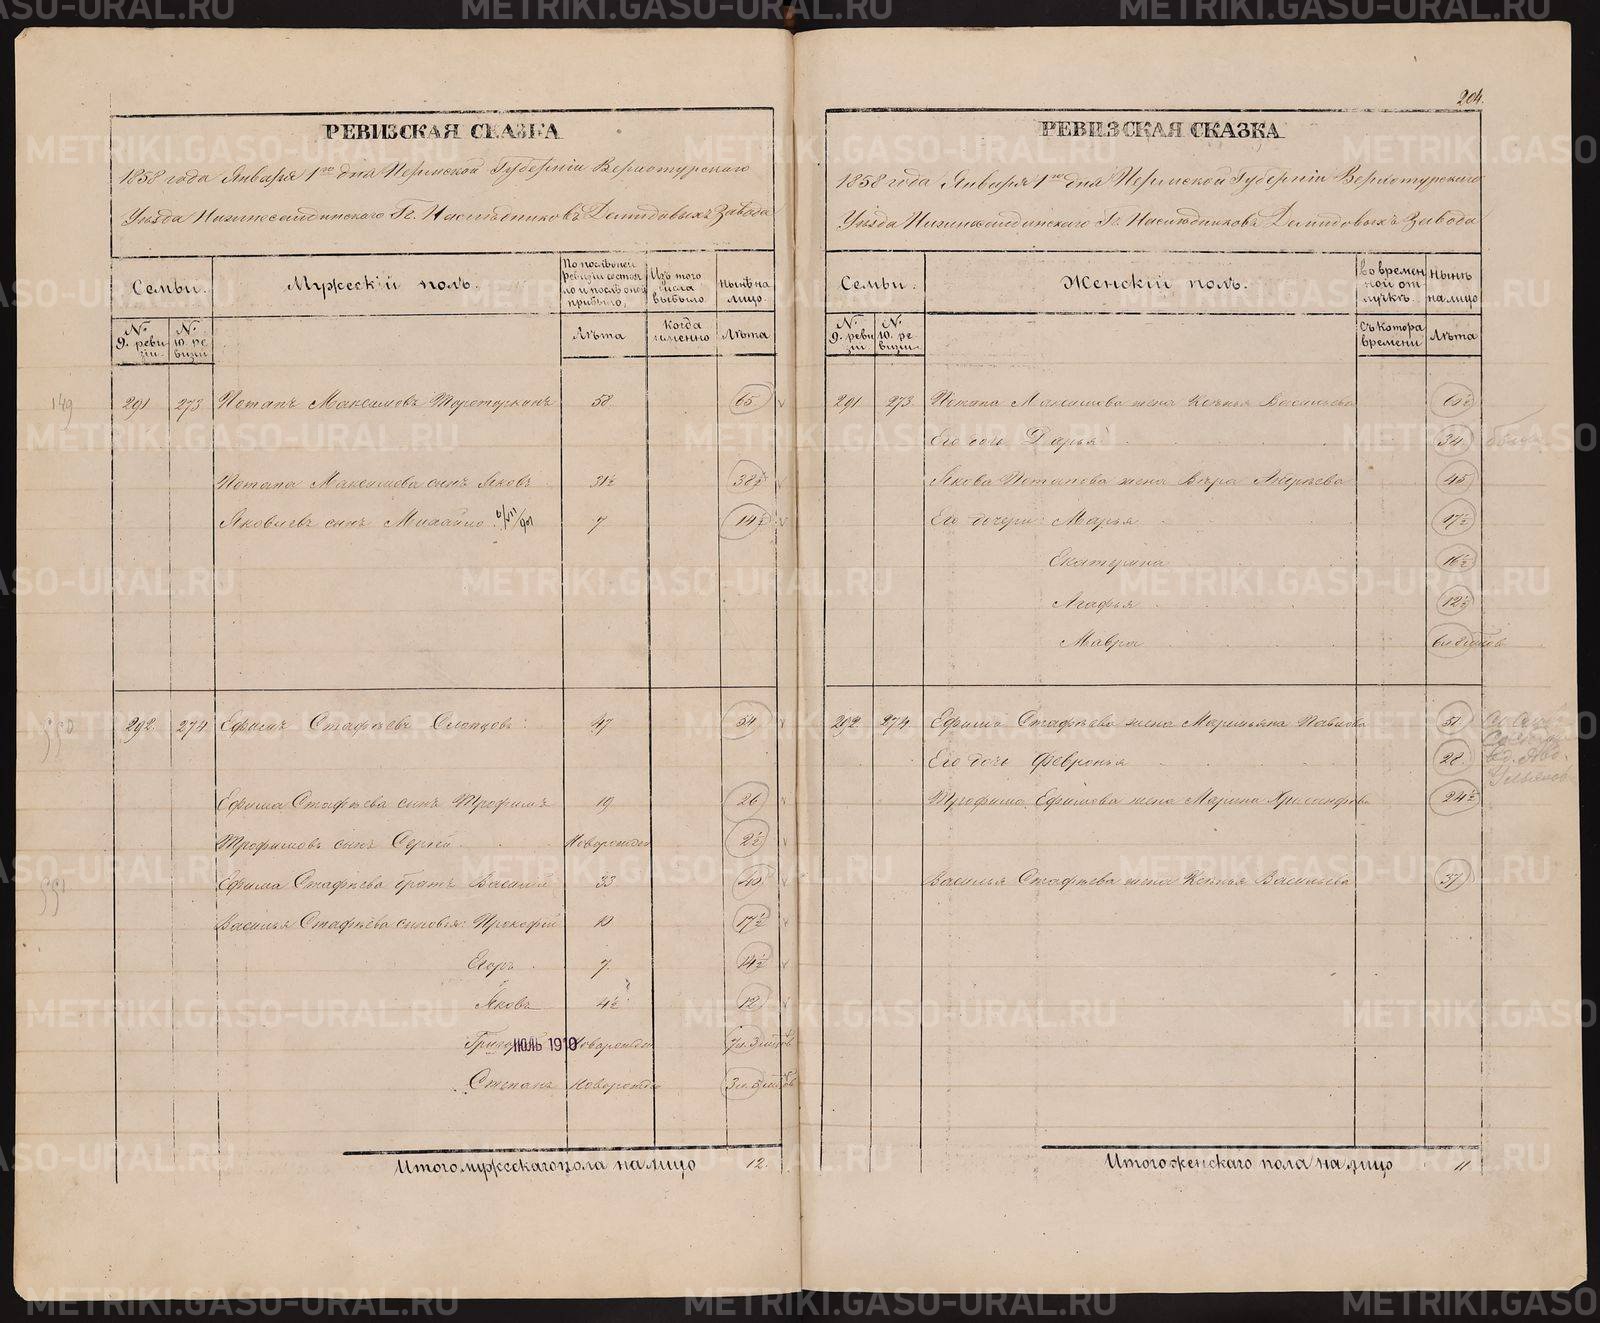 204.
РЕВИЗСКАЯ СКАЗКА
1858 года Января 1го дня Пермской Губерніи Верхотурскаго
Уѣзда Нижнесалдинскаго Гг. Наслѣдниковъ Демидовыхъ Завода
Семьи. Мужескій полъ. По послѣдней ревизіи состояло и послѣ оной прибыло, Изъ того числа выбыло Нынѣ на лицо.
№ 9. ревизіи. № 10. ревизіи Лѣта Когда именно Лѣта
149 291 273 Потапъ Максимовъ 58. 65
Потапа Максимова сынъ Яковъ 31½ 38½
Яковлевъ сынъ Михайло 7 14½
550 292. 274 Ефимъ Стафѣевъ Слопцовъ: 47 54
Ефима Стафѣева сынъ Трофимъ 19 26
Трофимовъ сынъ Сергей Новорожден 2½
551 Ефима Стафѣева братъ Василій 33 40
Василья Стафѣева сыновья: Прокофій 10 17½
Егоръ 7. 14½
Яковъ 4½ 12
ИЮЛЬ 1910 Новорожден
Степанъ Новорожден
Итого мужескаго пола на лицо 12.
РЕВИЗСКАЯ СКАЗКА
1858 года Января 1го дня Пермской Губерніи Верхотурскаго
Уѣзда Нижнесалдинскаго Гг. Наслѣдниковъ Демидовыхъ Завода
Семьи. Женскій полъ. Во временной отлучкѣ. Нынѣ на лицо
№ 9. ревизіи № 10. ревизіи. Съ котора времени Лѣта
291 273 Потапа Максимова жена Ксенья Васильева
Его дочь Дарья 34
Якова Потапова жена Вѣра 45
Его дочери: Марья 17½
Екатерина 16½
Агафья 12½
Мавра
292 274 Ефима Стафѣева жена Маремьяна Павлова 51
Его дочь Февронья 28
Трофима Ефимова жена Марина 24½
Василья Стафѣева жена Ксенья Васильева 37
Итого женскаго пола на лицо 11
METRIKI.GASO-URAL.RU